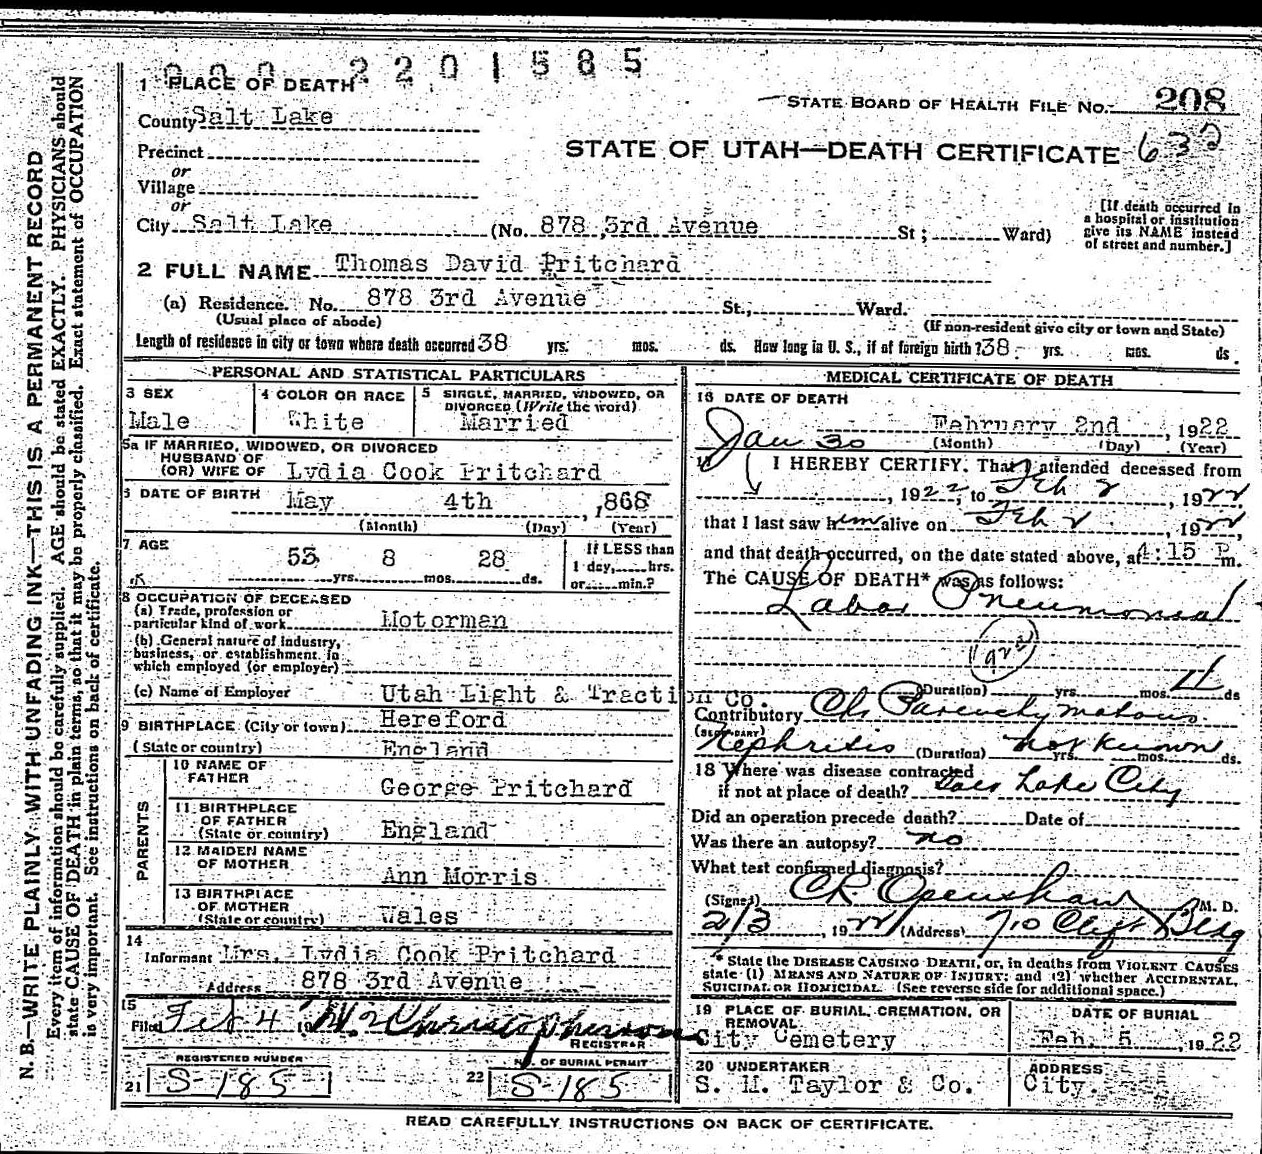 000 2201585
1 PLACE OF DEATH
STATE BOARD OF HEALTH FILE No. 208
County Salt Lake
STATE OF UTAH—DEATH CERTIFICATE 632
Precinct
or
Village
or
City Salt Lake (No. 878 3rd Avenue St; Ward)
[If death occurred in
a hospital or institution
give its NAME instead
of street and number.]
2 FULL NAME Thomas David Pritchard
(a) Residence. No. 878 3rd Avenue St., Ward.
(Usual place of abode) (If non-resident give city or town and State)
Length of residence in city or town where death occurred 38 yrs. mos. ds. How long in U. S., if of foreign birth? 38 yrs. mos. ds.
PERSONAL AND STATISTICAL PARTICULARS
3 SEX
Male
4 COLOR OR RACE
White
5 SINGLE, MARRIED, WIDOWED, OR
DIVORCED (Write the word)
Married
5a IF MARRIED, WIDOWED, OR DIVORCED
HUSBAND OF
(OR) WIFE OF Lydia Cook Pritchard
6 DATE OF BIRTH May 4th, 1868
(Month) (Day) (Year)
7 AGE 53 yrs. 8 mos. 28 ds.
If LESS than
1 day, hrs.
or min.?
8 OCCUPATION OF DECEASED
(a) Trade, profession or
particular kind of work Motorman
(b) General nature of industry,
business, or establishment in
which employed (or employer)
(c) Name of Employer Utah Light & Traction Co.
9 BIRTHPLACE (City or town) Hereford
(State or country) England
PARENTS
10 NAME OF
FATHER George Pritchard
11 BIRTHPLACE
OF FATHER
(State or country) England
12 MAIDEN NAME
OF MOTHER Ann Morris
13 BIRTHPLACE
OF MOTHER
(State or country) Wales
14
Informant Mrs. Lydia Cook Pritchard
Address 878 3rd Avenue
15
Filed Feb 4 19
REGISTRAR
REGISTERED NUMBER
21 S-185
NO. OF BURIAL PERMIT
22 S-185
MEDICAL CERTIFICATE OF DEATH
16 DATE OF DEATH
February 2nd, 1922
(Month) (Day) (Year)
Jan 30
17 I HEREBY CERTIFY. That I attended deceased from
, 1922, to Feb 2, 1922
that I last saw him alive on Feb 2, 1922,
and that death occurred, on the date stated above, at 4:15 P m.
The CAUSE OF DEATH* was as follows:
Labor Pneumonia
(Duration) yrs. mos. 11 ds
Contributory Ch. Parenchymatous
(SECONDARY)
Nephritis (Duration) not known yrs. mos. ds.
18 Where was disease contracted
if not at place of death? Salt Lake City
Did an operation precede death? Date of
Was there an autopsy? no
What test confirmed diagnosis?
(Signed) CR Openshaw, M. D.
2/3, 1922 (Address) 710 Clift Bldg
* State the DISEASE CAUSING DEATH, or, in deaths from VIOLENT CAUSES
state (1) MEANS AND NATURE OF INJURY; and (2) whether ACCIDENTAL,
SUICIDAL OR HOMICIDAL. (See reverse side for additional space.)
19 PLACE OF BURIAL, CREMATION, OR
REMOVAL
City Cemetery
DATE OF BURIAL
Feb. 5, 1922
20 UNDERTAKER
S. M. Taylor & Co.
ADDRESS
City.
READ CAREFULLY INSTRUCTIONS ON BACK OF CERTIFICATE.
N. B.—WRITE PLAINLY WITH UNFADING INK—THIS IS A PERMANENT RECORD
Every item of information should be carefully supplied. AGE should be stated EXACTLY. PHYSICIANS should
state CAUSE OF DEATH in plain terms, so that it may be properly classified. Exact statement of OCCUPATION
is very important. See instructions on back of certificate.